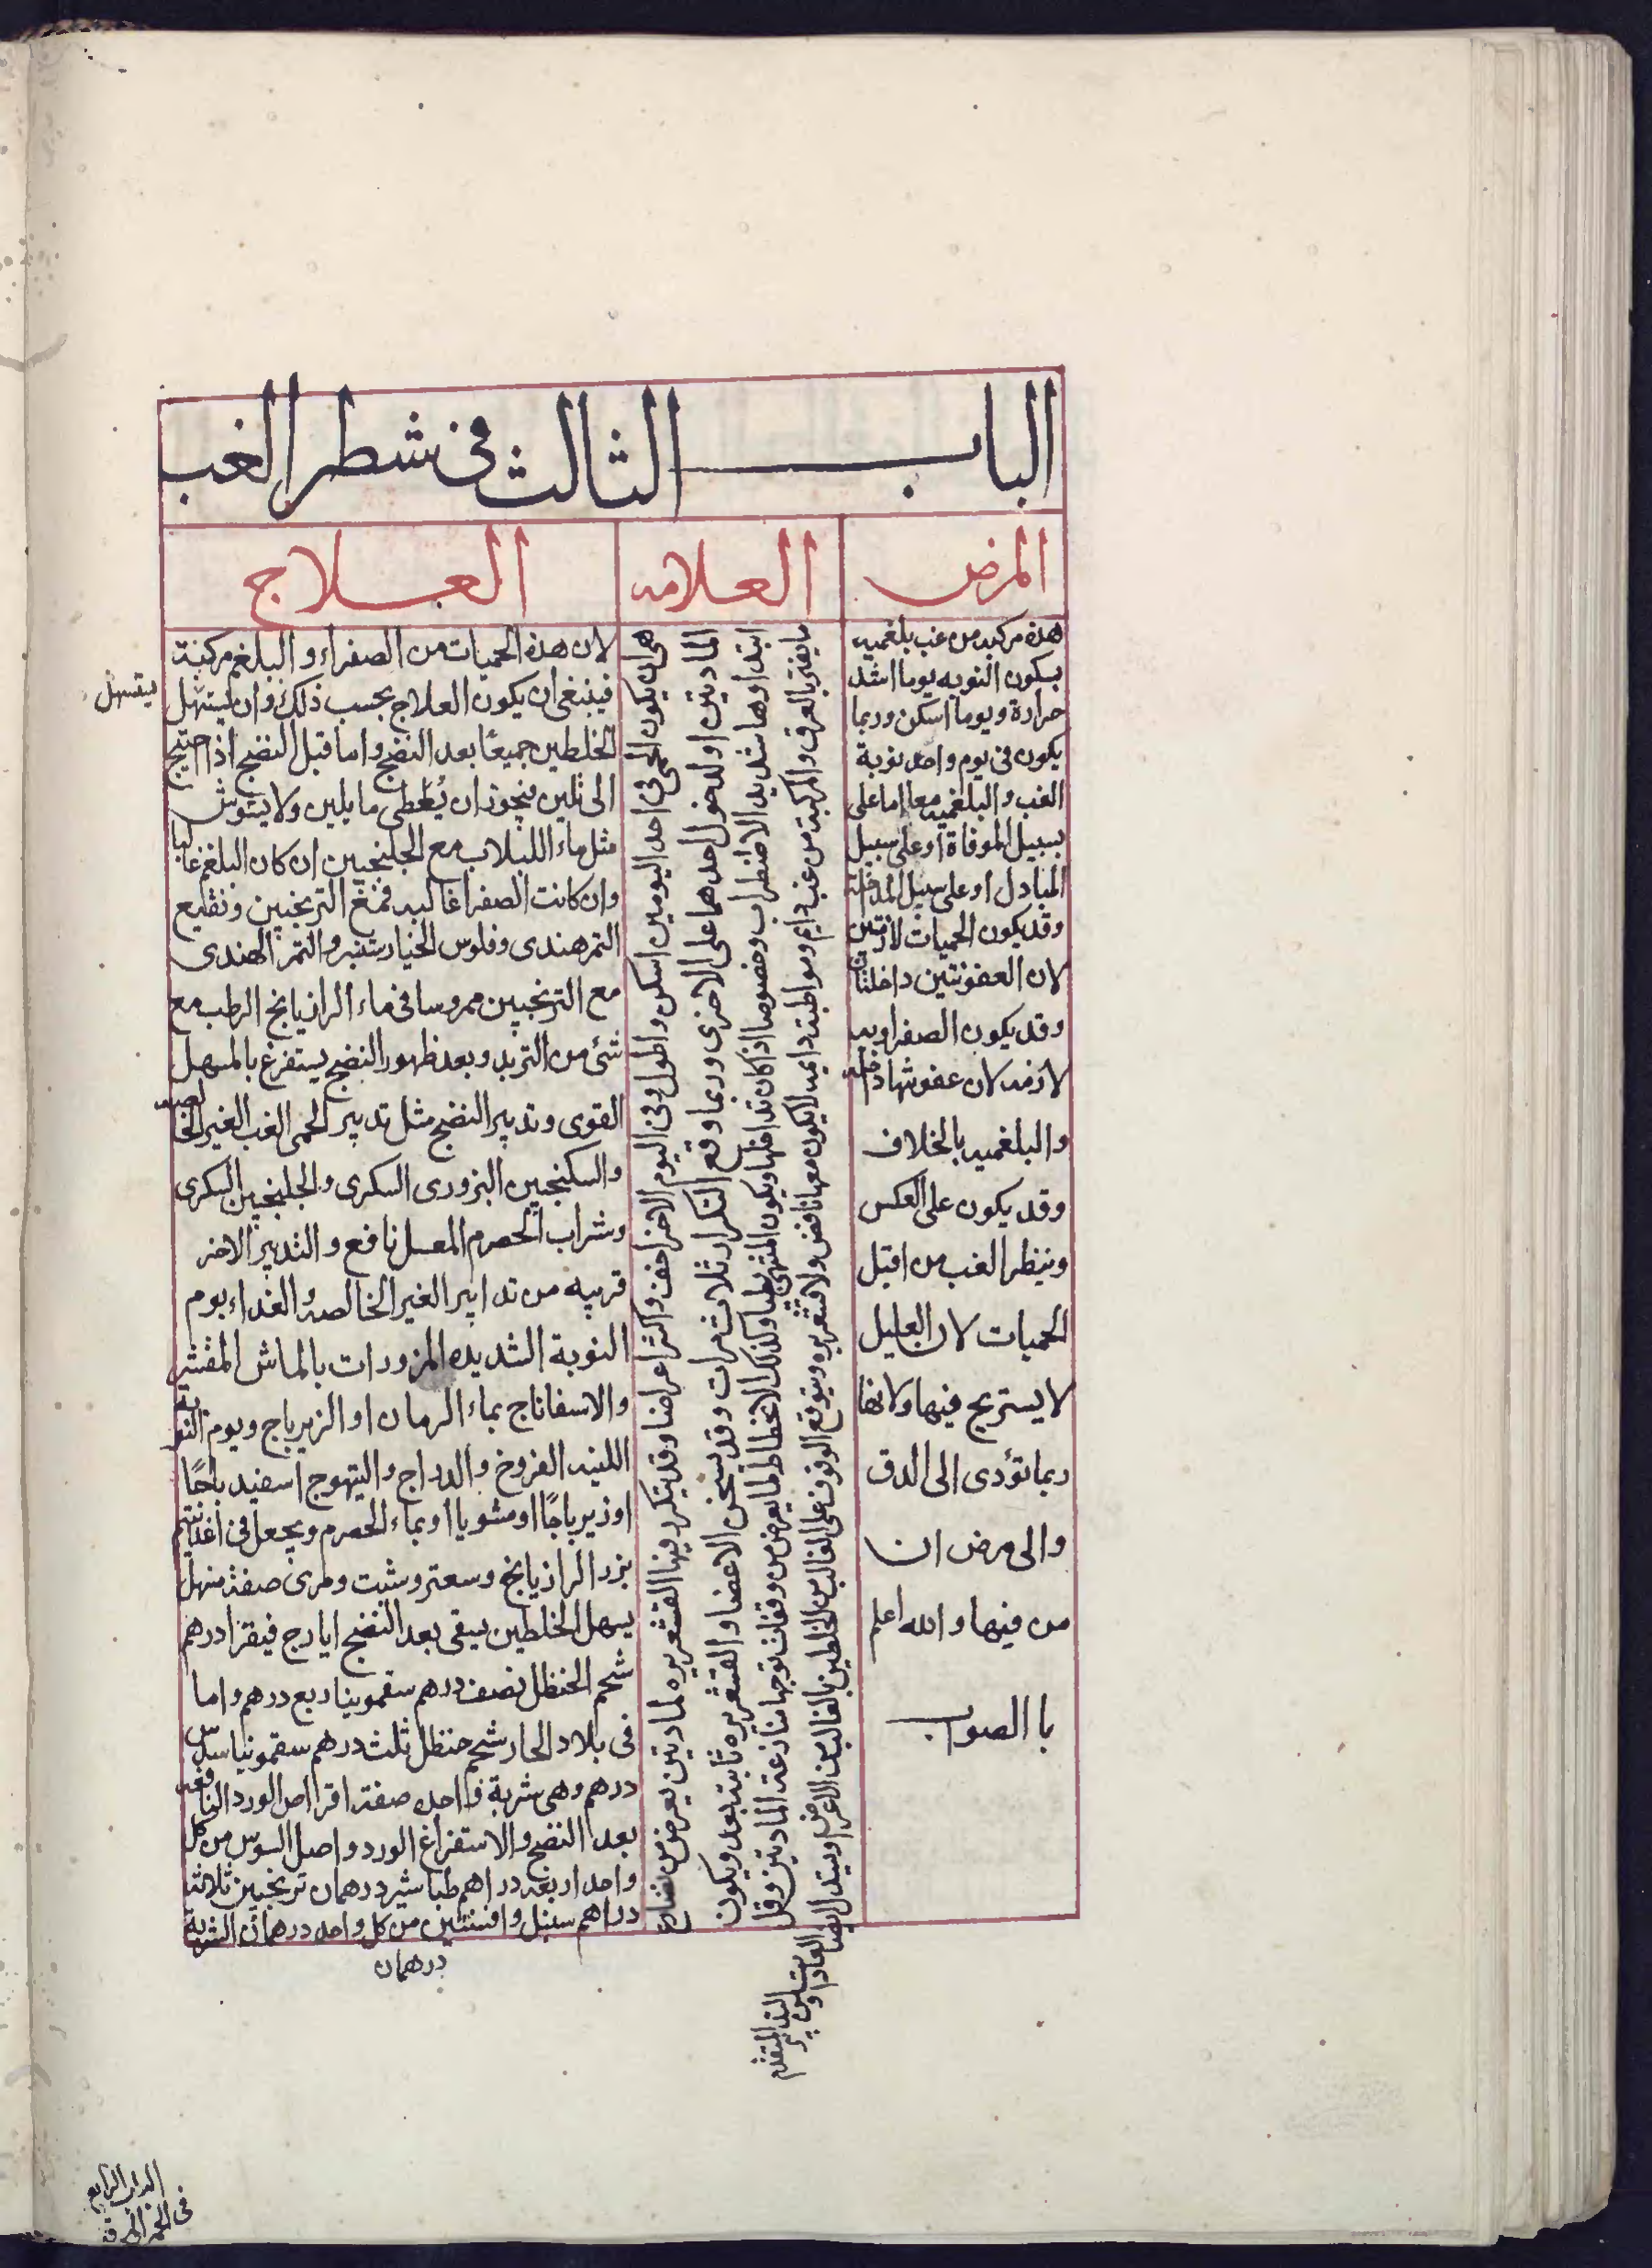 الباب الثالث في شطر الغب
المرض
العلامه
العلاج
هذه مركبه من غب بلغميه
يكون النوبه يوما اشد
حرارة ويوما اسكن وربما
يكون في يوم واحد نوبة
الغب والبلغميه معا اما على
سبيل الموفاة او على سبيل
المبادل او على سبيل المداخلة
وقد يكون الحميات لازمتين
لان العفونتين داخلتان
وقد يكون الصفراويه
لازمه لان عفونتها داخله
والبلغميه بالخلاف
وقد يكون على العكس
وينظر الغب من اقبل
الحميات لان العليل
لا يستريح فيها ولانها
ربما تؤدى الى الدق
والى مرض ان
من فيها والله اعلم
با الصواب
هي ان يكون الحمى في احد اليومين اسكن واطول وفي اليوم الاخر اخف واكثر اعراضا وقد يتكرر فيها القشعريره لمادتين يعرض من
المادتين اولدخول احدهما على الاخرى وربما وقع التكرار ثلاث مرات وقد يسخن الاعضا والقشعريره ثابته بعد ويكون
ابتداوها شديد الاضطراب وخصوصا اذا كان تداخلها ويكون المنتهى بطيا وكذلك الانحطاط لما يعرض من وقفات توجها منازعة المادتين وقل
ما يفتر بالعرق والمركبة من غب دايم ومواظبة دايمه لا يكون معها نافض ولا قشعريره ويتوقع الوقوف على الغالب من الخلطين بالغالب من الاعراض ويستدل ايضا
بالعاده
والسن
التدبير المتقدم
لان هذه الحميات من الصفراء والبلغم مركبة
فينبغى ان يكون العلاج بحسب ذلك وان يستهل
يستسهل
الخلطين جميعًا بعد النضج واما قبل النضج اذا احتيج
الى تليين فيجوز ان يُعطى ما يلين ولا يشوش
مثل ماء اللبلاب مع الجلنجبين ان كان البلغم غالبا
وان كانت الصفرا غالبه فمع الترنجبين ونقيع
التمر هندى وفلوس الخيار شنبر والتمر الهندى
مع الترنجبين ممروسا في ماء الرازيانج الرطب مع
شئ من التربد وبعد ظهور النضج يستفرغ بالمسهل
القوى وتدبير النضج مثل تدبير الحمى الغب الغير الخالصه
والسكنجبين البزورى السكرى والجلنجبين السكرى
وشراب الحصرم المعسل نافع والتدبير الاخر
قريبه من تدابير الغير الخالصه والغداء يوم
النوبة الشديده المزورات بالماش المقشر
والاسفاناج بماء الرمان او الزيرباج ويوم النوبة
اللينه الفروخ والدراج والتيهوج اسفيد باجًا
او زيرباجًا او مشويا او بماء الحصرم ويجعل في اغذيتهم
بزر الرازيانج وسعتر وشبت ومرى صفة منهل
يسهل الخلطين يبقى بعد النضج ايارج فيقرا درهم
شحم الحنظل نصف درهم سقمونيا ربع درهم واما
في بلاد الحار شحم حنظل ثلث درهم سقمونيا سدس
درهم وهى شربة فااحده صفة اقراص الورد النافعه
بعد النضج والاستفراغ الورد واصل السوس من كل
واحد اربعه دراهم طباشير درهمان ترنجبين ثلاثة
دراهم سنبل وافسنتين من كل واحد درهمان الشربة
درهمان
الباب الرابع
في الحمى المحرقة